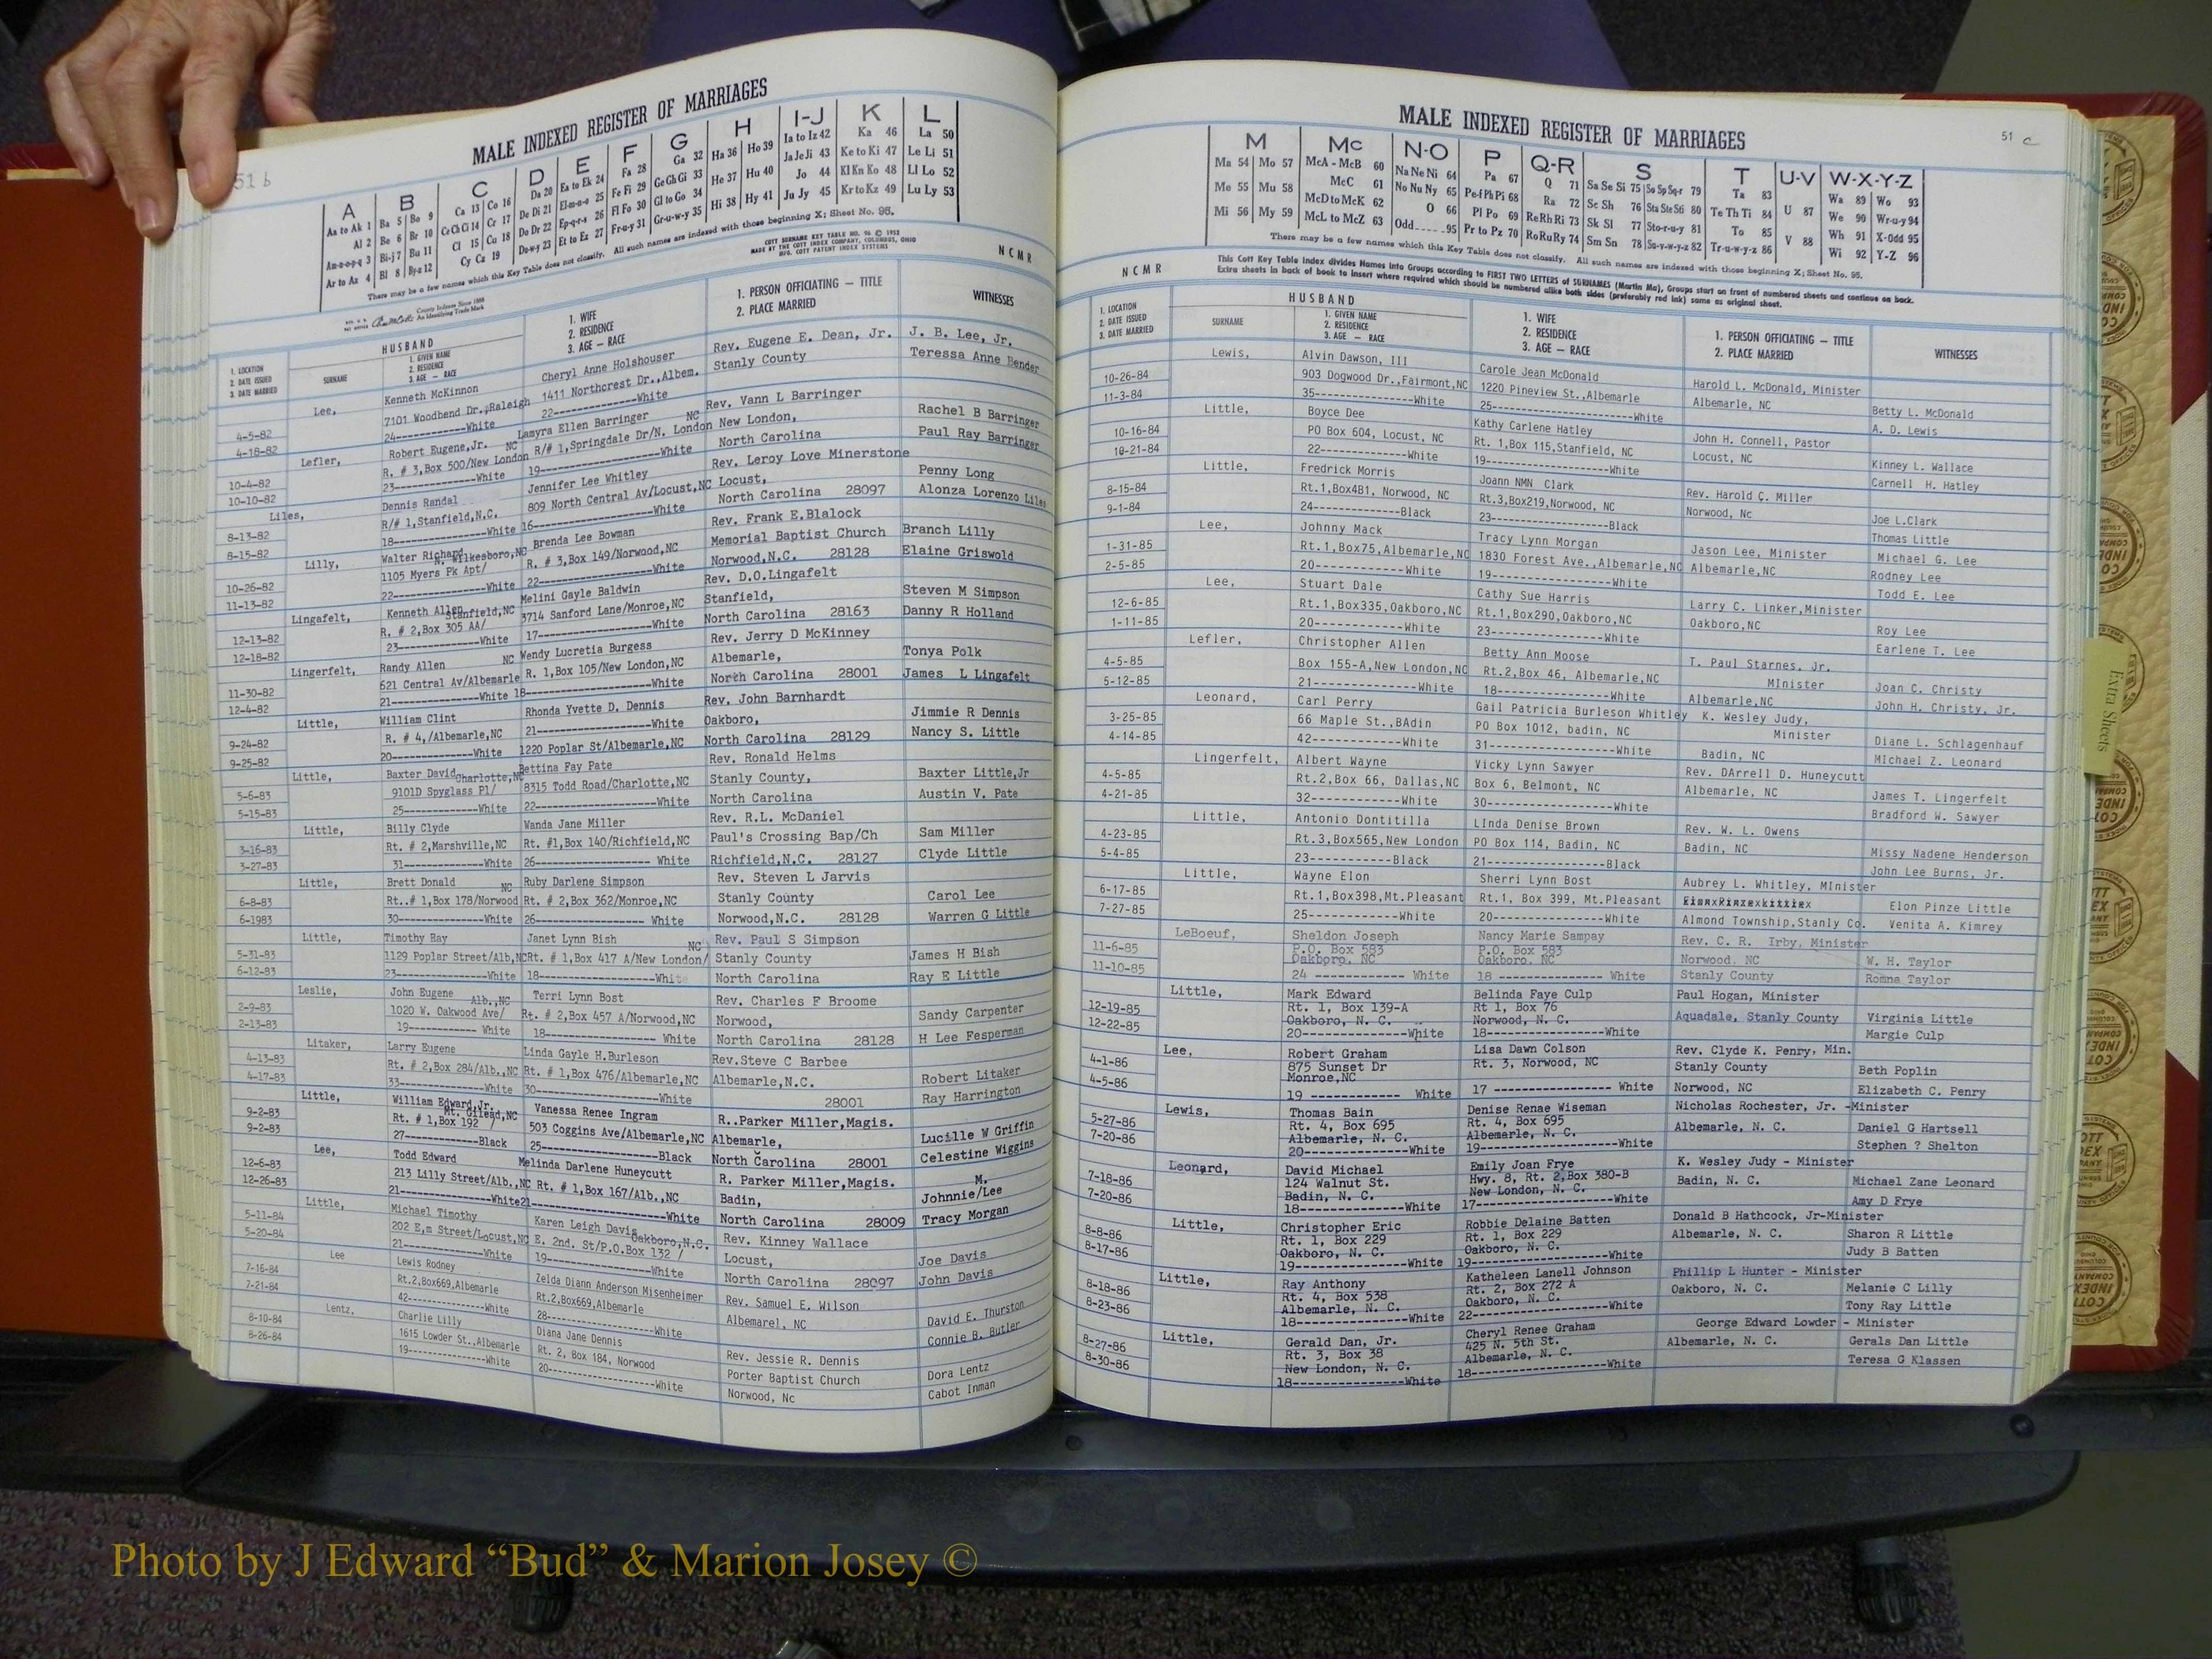 51 b
MALE INDEXED REGISTER OF MARRIAGES
A B C D E F G H I-J K L
Aa to Ak 1 Ba 5 Bo 9 Ca 13 Co 16 Da 20 Ea to Ek 24 Fa 28 Ga 32 Ha 36 Ho 39 Ia to Iz 42 Ka 46 La 50
Al 2 Be 6 Br 10 Ce Ch Ci 14 Cr 17 De Di 21 El-m-n-o 25 Fe Fi 29 Ge Gh Gi 33 He 37 Hu 40 Ja Je Ji 43 Ke to Ki 47 Le Li 51
Am-n-o-p-q 3 Bi-j 7 Bu 11 Cl 15 Cu 18 Do Dr 22 Ep-q-r-s 26 Fl Fo 30 Gl to Go 34 Hi 38 Hy 41 Jo 44 Kl Kn Ko 48 Ll Lo 52
Ar to Az 4 Bl 8 By-z 12 Cy Cz 19 Du-w-y 23 Et to Ez 27 Fr-u-y 31 Gr-u-w-y 35 Ju Jy 45 Kr to Kz 49 Lu Ly 53
There may be a few names which this Key Table does not classify. All such names are indexed with those beginning X; Sheet No. 95.
COTT SURNAME KEY TABLE NO. 96 © 1952
MADE BY THE COTT INDEX COMPANY, COLUMBUS, OHIO
MFG. COTT PATENT INDEX SYSTEMS
County Indexes Since 1888
An Identifying Trade Mark
N C M R
HUSBAND
1. LOCATION
2. DATE ISSUED
3. DATE MARRIED
SURNAME
1. GIVEN NAME
2. RESIDENCE
3. AGE — RACE
1. WIFE
2. RESIDENCE
3. AGE — RACE
1. PERSON OFFICIATING — TITLE
2. PLACE MARRIED
WITNESSES
Lee, Kenneth McKinnon Cheryl Anne Holshouser Rev. Eugene E. Dean, Jr. J. B. Lee, Jr.
4-5-82 7101 Woodbend Dr.,Raleigh 1411 Northcrest Dr.,Albem. Stanly County Teressa Anne Bender
4-18-82 24------------White 22--------------White
Lefler, Robert Eugene,Jr. NC Lamyra Ellen Barringer NC Rev. Vann L Barringer Rachel B Barringer
10-4-82 R. # 3,Box 500/New London R/# 1,Springdale Dr/N. London New London, Paul Ray Barringer
10-10-82 23--------------White 19------------------White North Carolina
Liles, Dennis Randal Jennifer Lee Whitley Rev. Leroy Love Minerstone Penny Long
8-13-82 R/# 1,Stanfield,N.C. 809 North Central Av/Locust,NC Locust, Alonza Lorenzo Liles
8-15-82 18---------------White 16------------------White North Carolina 28097
Lilly, Walter Richard N. Wilkesboro,NC Brenda Lee Bowman Rev. Frank E.Blalock Branch Lilly
10-26-82 1105 Myers Pk Apt/ R. # 3,Box 149/Norwood,NC Memorial Baptist Church Elaine Griswold
11-13-82 22---------------White 22----------------White Norwood,N.C. 28128
Lingafelt, Kenneth Allen Stanfield,NC Melini Gayle Baldwin Rev. D.O.Lingafelt Steven M Simpson
12-13-82 R. # 2,Box 305 AA/ 3714 Sanford Lane/Monroe,NC Stanfield, Danny R Holland
12-18-82 23-------------White 17-----------------White North Carolina 28163
Lingerfelt, Randy Allen NC Wendy Lucretia Burgess Rev. Jerry D McKinney Tonya Polk
11-30-82 621 Central Av/Albemarle R. 1,Box 105/New London,NC Albemarle, James L Lingafelt
12-4-82 21--------------White 18-----------------White North Carolina 28001
Little, William Clint Rhonda Yvette D. Dennis Rev. John Barnhardt Jimmie R Dennis
9-24-82 R. # 4,/Albemarle,NC 21-----------------White Oakboro, Nancy S. Little
9-25-82 20-------------White 1220 Poplar St/Albemarle,NC North Carolina 28129
Little, Baxter David Charlotte,NC Bettina Fay Pate Rev. Ronald Helms Baxter Little,Jr
5-6-83 9101D Spyglass Pl/ 8315 Todd Road/Charlotte,NC Stanly County, Austin V. Pate
5-15-83 25--------------White 22-----------------White North Carolina
Little, Billy Clyde Wanda Jane Miller Rev. R.L. McDaniel Sam Miller
3-16-83 Rt. # 2,Marshville,NC Rt. #1,Box 140/Richfield,NC Paul's Crossing Bap/Ch Clyde Little
3-27-83 31--------------White 26---------------- White Richfield,N.C. 28127
Little, Brett Donald NC Ruby Darlene Simpson Rev. Steven L Jarvis Carol Lee
6-8-83 Rt..# 1,Box 178/Norwood Rt. # 2,Box 362/Monroe,NC Stanly County Warren G Little
6-1983 30--------------White 26---------------- White Norwood,N.C. 28128
Little, Timothy Ray Janet Lynn Bish NC Rev. Paul S Simpson James H Bish
5-31-83 1129 Poplar Street/Alb,NC Rt. # 1,Box 417 A/New London/ Stanly County Ray E Little
6-12-83 23---------------White 18-----------------White North Carolina
Leslie, John Eugene Alb.,NC Terri Lynn Bost Rev. Charles F Broome Sandy Carpenter
2-9-83 1020 W. Oakwood Ave/ Rt. # 2,Box 457 A/Norwood,NC Norwood, H Lee Fesperman
2-13-83 19------------ White 18----------------- White North Carolina 28128
Litaker, Larry Eugene Linda Gayle H.Burleson Rev.Steve C Barbee Robert Litaker
4-13-83 Rt. # 2,Box 284/Alb.,NC Rt. # 1,Box 476/Albemarle,NC Albemarle,N.C. Ray Harrington
4-17-83 33--------------White 30-----------------White 28001
Little, William Edward,Jr. Mt. Gilead,NC Vanessa Renee Ingram R..Parker Miller,Magis. Lucille W Griffin
9-2-83 Rt. # 1,Box 192 / 503 Coggins Ave/Albemarle,NC Albemarle, Celestine Wiggins
9-2-83 27--------------Black 25------------------Black North Carolina 28001
Lee, Todd Edward Melinda Darlene Huneycutt R. Parker Miller,Magis. M.
12-6-83 213 Lilly Street/Alb.,NC Rt. # 1,Box 167/Alb.,NC Badin, Johnnie/Lee
12-26-83 21----------------White 21--------------------White North Carolina 28009 Tracy Morgan
Little, Michael Timothy Karen Leigh Davis Oakboro,N.C. Rev. Kinney Wallace Joe Davis
5-11-84 202 E,m Street/Locust,NC E. 2nd. St/P.O.Box 132 / Locust, John Davis
5-20-84 21---------------White 19-----------------White North Carolina 28097
Lee Lewis Rodney Zelda Diann Anderson Misenheimer Rev. Samuel E. Wilson David E. Thurston
7-16-84 Rt.2,Box669,Albemarle Rt.2,Box669,Albemarle Albemarel, NC Connie B. Butler
7-21-84 42--------------White 28-----------------White
Lentz, Charlie Lilly Diana Jane Dennis Rev. Jessie R. Dennis Dora Lentz
8-10-84 1615 Lowder St.,Albemarle Rt. 2, Box 184, Norwood Porter Baptist Church Cabot Inman
8-26-84 19--------------White 20-----------------White Norwood, Nc
51 c
MALE INDEXED REGISTER OF MARRIAGES
M Mc N-O P Q-R S T U-V W-X-Y-Z
Ma 54 Mo 57 McA - McB 60 Na Ne Ni 64 Pa 67 Q 71 Sa Se Si 75 So Sp Sq-r 79 Ta 83 Wa 89 Wo 93
Me 55 Mu 58 McC 61 No Nu Ny 65 Pe-f Ph Pi 68 Ra 72 Sc Sh 76 Sta Ste Sti 80 Te Th Ti 84 U 87 We 90 Wr-u-y 94
Mi 56 My 59 McD to McK 62 O 66 Pl Po 69 Re Rh Ri 73 Sk Sl 77 Sto-r-u-y 81 To 85 Wh 91 X-Odd 95
McL to McZ 63 Odd 95 Pr to Pz 70 Ro Ru Ry 74 Sm Sn 78 Su-v-w-y-z 82 Tr-u-w-y-z 86 V 88 Wi 92 Y-Z 96
There may be a few names which this Key Table does not classify. All such names are indexed with those beginning X; Sheet No. 95.
This Cott Key Table Index divides Names into Groups according to FIRST TWO LETTERS of SURNAMES (Martin Ma), Groups start on front of numbered sheets and continue on back.
Extra sheets in back of book to insert where required which should be numbered alike both sides (preferably red ink) same as original sheet.
N C M R
HUSBAND
1. LOCATION
2. DATE ISSUED
3. DATE MARRIED
SURNAME
1. GIVEN NAME
2. RESIDENCE
3. AGE — RACE
1. WIFE
2. RESIDENCE
3. AGE — RACE
1. PERSON OFFICIATING — TITLE
2. PLACE MARRIED
WITNESSES
Lewis, Alvin Dawson, III Carole Jean McDonald Harold L. McDonald, Minister Betty L. McDonald
10-26-84 903 Dogwood Dr.,Fairmont,NC 1220 Pineview St.,Albemarle Albemarle, NC A. D. Lewis
11-3-84 35--------------White 25------------------White
Little, Boyce Dee Kathy Carlene Hatley John H. Connell, Pastor Kinney L. Wallace
10-16-84 PO Box 604, Locust, NC Rt. 1,Box 115,Stanfield, NC Locust, NC Carnell H. Hatley
10-21-84 22-------------White 19-----------------White
Little, Fredrick Morris Joann NMN Clark Rev. Harold C. Miller Joe L.Clark
8-15-84 Rt.1,Box4B1, Norwood, NC Rt.3,Box219,Norwood, NC Norwood, Nc Thomas Little
9-1-84 24------------Black 23----------------Black
Lee, Johnny Mack Tracy Lynn Morgan Jason Lee, Minister Michael G. Lee
1-31-85 Rt.1,Box75,Albemarle,NC 1830 Forest Ave.,Albemarle,NC Albemarle,NC Rodney Lee
2-5-85 20-------------White 19----------------White Todd E. Lee
Lee, Stuart Dale Cathy Sue Harris Larry C. Linker,Minister Roy Lee
12-6-85 Rt.1,Box335,Oakboro,NC Rt.1,Box290,Oakboro,NC Oakboro,NC Earlene T. Lee
1-11-85 20-------------White 23---------------White
Lefler, Christopher Allen Betty Ann Moose T. Paul Starnes, Jr. Joan C. Christy
4-5-85 Box 155-A,New London,NC Rt.2,Box 46, Albemarle,NC MInister John H. Christy, Jr.
5-12-85 21-------------White 18----------------White Albemarle,NC
Leonard, Carl Perry Gail Patricia Burleson Whitley K. Wesley Judy, Diane L. Schlagenhauf
3-25-85 66 Maple St.,BAdin PO Box 1012, badin, NC Minister MIchael Z. Leonard
4-14-85 42-----------White 31-----------------White Badin, NC
Lingerfelt, Albert Wayne Vicky Lynn Sawyer Rev. DArrell D. Huneycutt James T. Lingerfelt
4-5-85 Rt.2,Box 66, Dallas,NC Box 6, Belmont, NC Albemarle, NC Bradford W. Sawyer
4-21-85 32------------White 30----------------White
Little, Antonio Dontitilla LInda Denise Brown Rev. W. L. Owens Missy Nadene Henderson
4-23-85 Rt.3,Box565,New London PO Box 114, Badin, NC Badin, NC John Lee Burns, Jr.
5-4-85 23-----------Black 21---------------Black
Little, Wayne Elon Sherri Lynn Bost Aubrey L. Whitley, MInister Elon Pinze Little
6-17-85 Rt.1,Box398,Mt.Pleasant Rt.1, Box 399, Mt.Pleasant Venita A. Kimrey
7-27-85 25------------White 20---------------White Almond Township,Stanly Co.
LeBoeuf, Sheldon Joseph Nancy Marie Sampay Rev. C. R. Irby, Minister W. H. Taylor
11-6-85 P.O. Box 583 P.O. Box 583 Norwood, NC Romna Taylor
11-10-85 Oakboro, NC Oakboro, NC Stanly County
24 ------------ White 18 -------------- White
Little, Mark Edward Belinda Faye Culp Paul Hogan, Minister Virginia Little
12-19-85 Rt. 1, Box 139-A Rt 1, Box 76 Aquadale, Stanly County Margie Culp
12-22-85 Oakboro, N. C. Norwood, N. C.
20--------------White 18----------------White
Lee, Robert Graham Lisa Dawn Colson Rev. Clyde K. Penry, Min. Beth Poplin
4-1-86 875 Sunset Dr Rt. 3, Norwood, NC Stanly County Elizabeth C. Penry
4-5-86 Monroe,NC Norwood, NC
19 ------------ White 17 ---------------- White
Lewis, Thomas Bain Denise Renae Wiseman Nicholas Rochester, Jr. -Minister Daniel G Hartsell
5-27-86 Rt. 4, Box 695 Rt. 4, Box 695 Albemarle, N. C. Stephen ? Shelton
7-20-86 Albemarle, N. C. Albemarle, N. C.
20--------------White 19-----------------White
Leonard, David Michael Emily Joan Frye K. Wesley Judy - Minister Michael Zane Leonard
7-18-86 124 Walnut St. Hwy. 8, Rt. 2,Box 380-B Badin, N. C. Amy D Frye
7-20-86 Badin, N. C. New London, N. C.
18--------------White 17-----------------White
Little, Christopher Eric Robbie Delaine Batten Donald B Hathcock, Jr-Minister Sharon R Little
8-8-86 Rt. 1, Box 229 Rt. 1, Box 229 Albemarle, N. C. Judy B Batten
8-17-86 Oakboro, N. C. Oakboro, N. C.
19---------------White 19-----------------White
Little, Ray Anthony Katheleen Lanell Johnson Phillip L Hunter - Minister Melanie C Lilly
8-18-86 Rt. 4, Box 538 Rt. 2, Box 272 A Oakboro, N. C. Tony Ray Little
8-23-86 Albemarle, N. C. Oakboro, N. C.
18---------------White 22-----------------White
Little, Gerald Dan, Jr. Cheryl Renee Graham George Edward Lowder - Minister Gerals Dan Little
8-27-86 Rt. 3, Box 38 425 N. 5th St. Albemarle, N. C. Teresa G Klassen
8-30-86 New London, N. C. Albemarle, N. C.
18---------------White 18-----------------White
Extra Sheets
Photo by J Edward “Bud” & Marion Josey ©